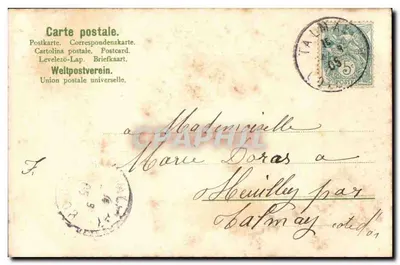 Carte postale.
Postkarte. Correspondenzkarte.
Cartolina postale. Postcard.
Levelező-Lap. Briefkaart.
Weltpostverein.
Union postale universelle.
5
à Mademoiselle
CPAPHIL.COM
Marie Doras à
F.
Heuilley par
Talmay côte d'or